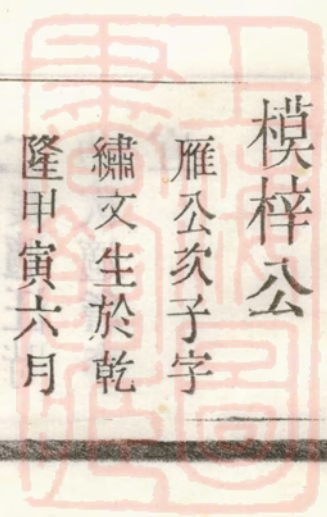 模梓公
雁公次子字
繡文生於乾
隆甲寅六月